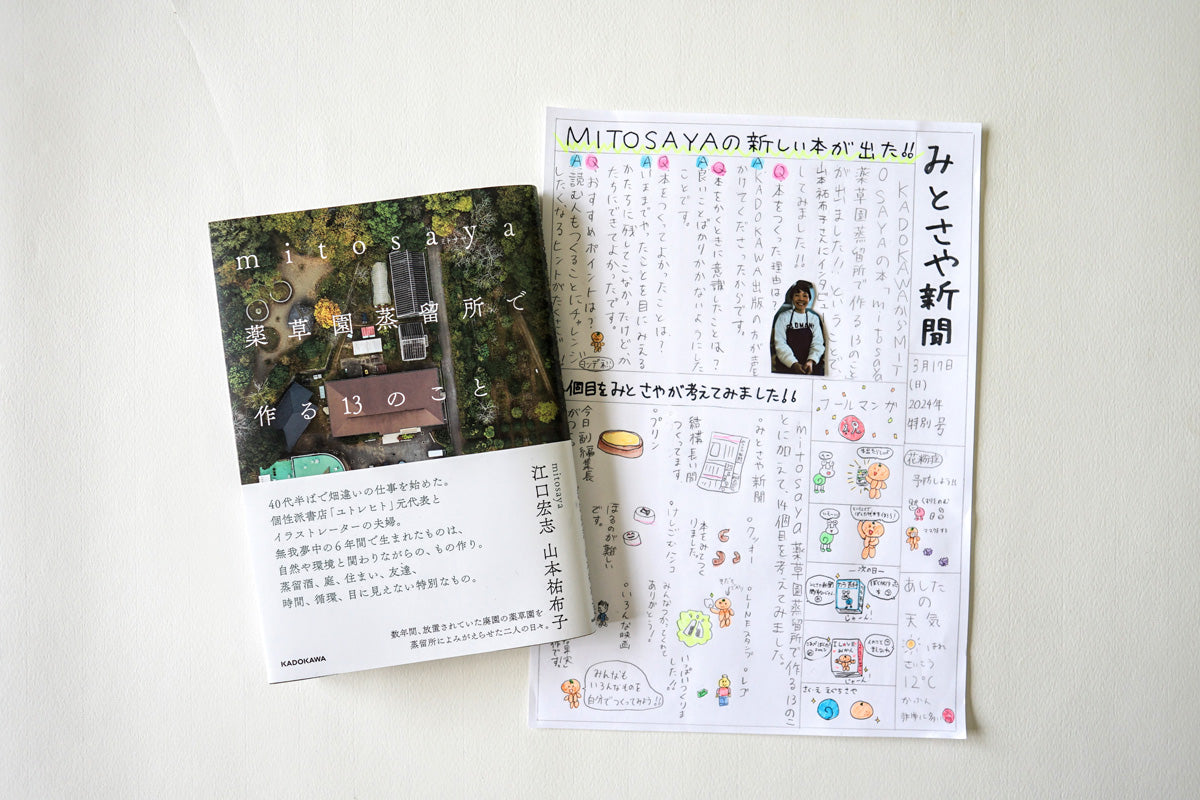 mitosaya
薬草園蒸留所で
作る13のこと
40代半ばで畑違いの仕事を始めた。
個性派書店「ユトレヒト」元代表と
イラストレーターの夫婦。
無我夢中の6年間で生まれたものは、
自然や環境と関わりながらの、もの作り。
蒸留酒、庭、住まい、友達、
時間、循環、目に見えない特別なもの。
mitosaya
江口宏志 山本祐布子
数年間、放置されていた廃園の薬草園を
蒸留所によみがえらせた二人の日々。
KADOKAWA
みとさや新聞
3月17日
(日)
2024年
特別号
MITOSAYAの新しい本が出た!!
KADOKAWAからMIT
OSAYAの本「mitosaya
薬草園蒸留所で作る13のこと
が出ました!!ということで、
山本祐布子さんにインタビュー
してみました!!
Q本をつくった理由は?
A KADOKAWA出版の方が声
かけてくださったからです。
Q本をかくときに意識したことは?
A良いことばかりかかないようにした
ことです。
Q本をつくってよかったことは?
Aいままでやったことを目にみえる
かたちに残してこなかったけどか
たちにできてよかったです。
Qおすすめポイントは?
A読む人もつくることにチャレンジ
したくなるヒントがたくさん
個目をみとさやが考えてみました!!
mitosaya薬草園蒸留所で作る13のこ
とに加えて14個目を考えてみました。
°みとさや新聞
結構長い間
つくってます
°プリン
今日副編集長
がつくる
°クッキー
本をみてつく
りました。
°けしごむハンコ
ほるのが難しい
です。
°LINEスタンプ
みんなつかってくれて
ありがとう!!
°いろんな映画
°レゴ
いっぱいつくりま
した!!
みんなも
いろんなものを
自分でつくってみよう!!
コールマンガ
—次の日—
じゃーん
じゃーん
さくしゃ えぐちさや
花粉症
予防しよう!!
あした
の
天気
はれ
さいこう
12℃
かふん
非常に多い